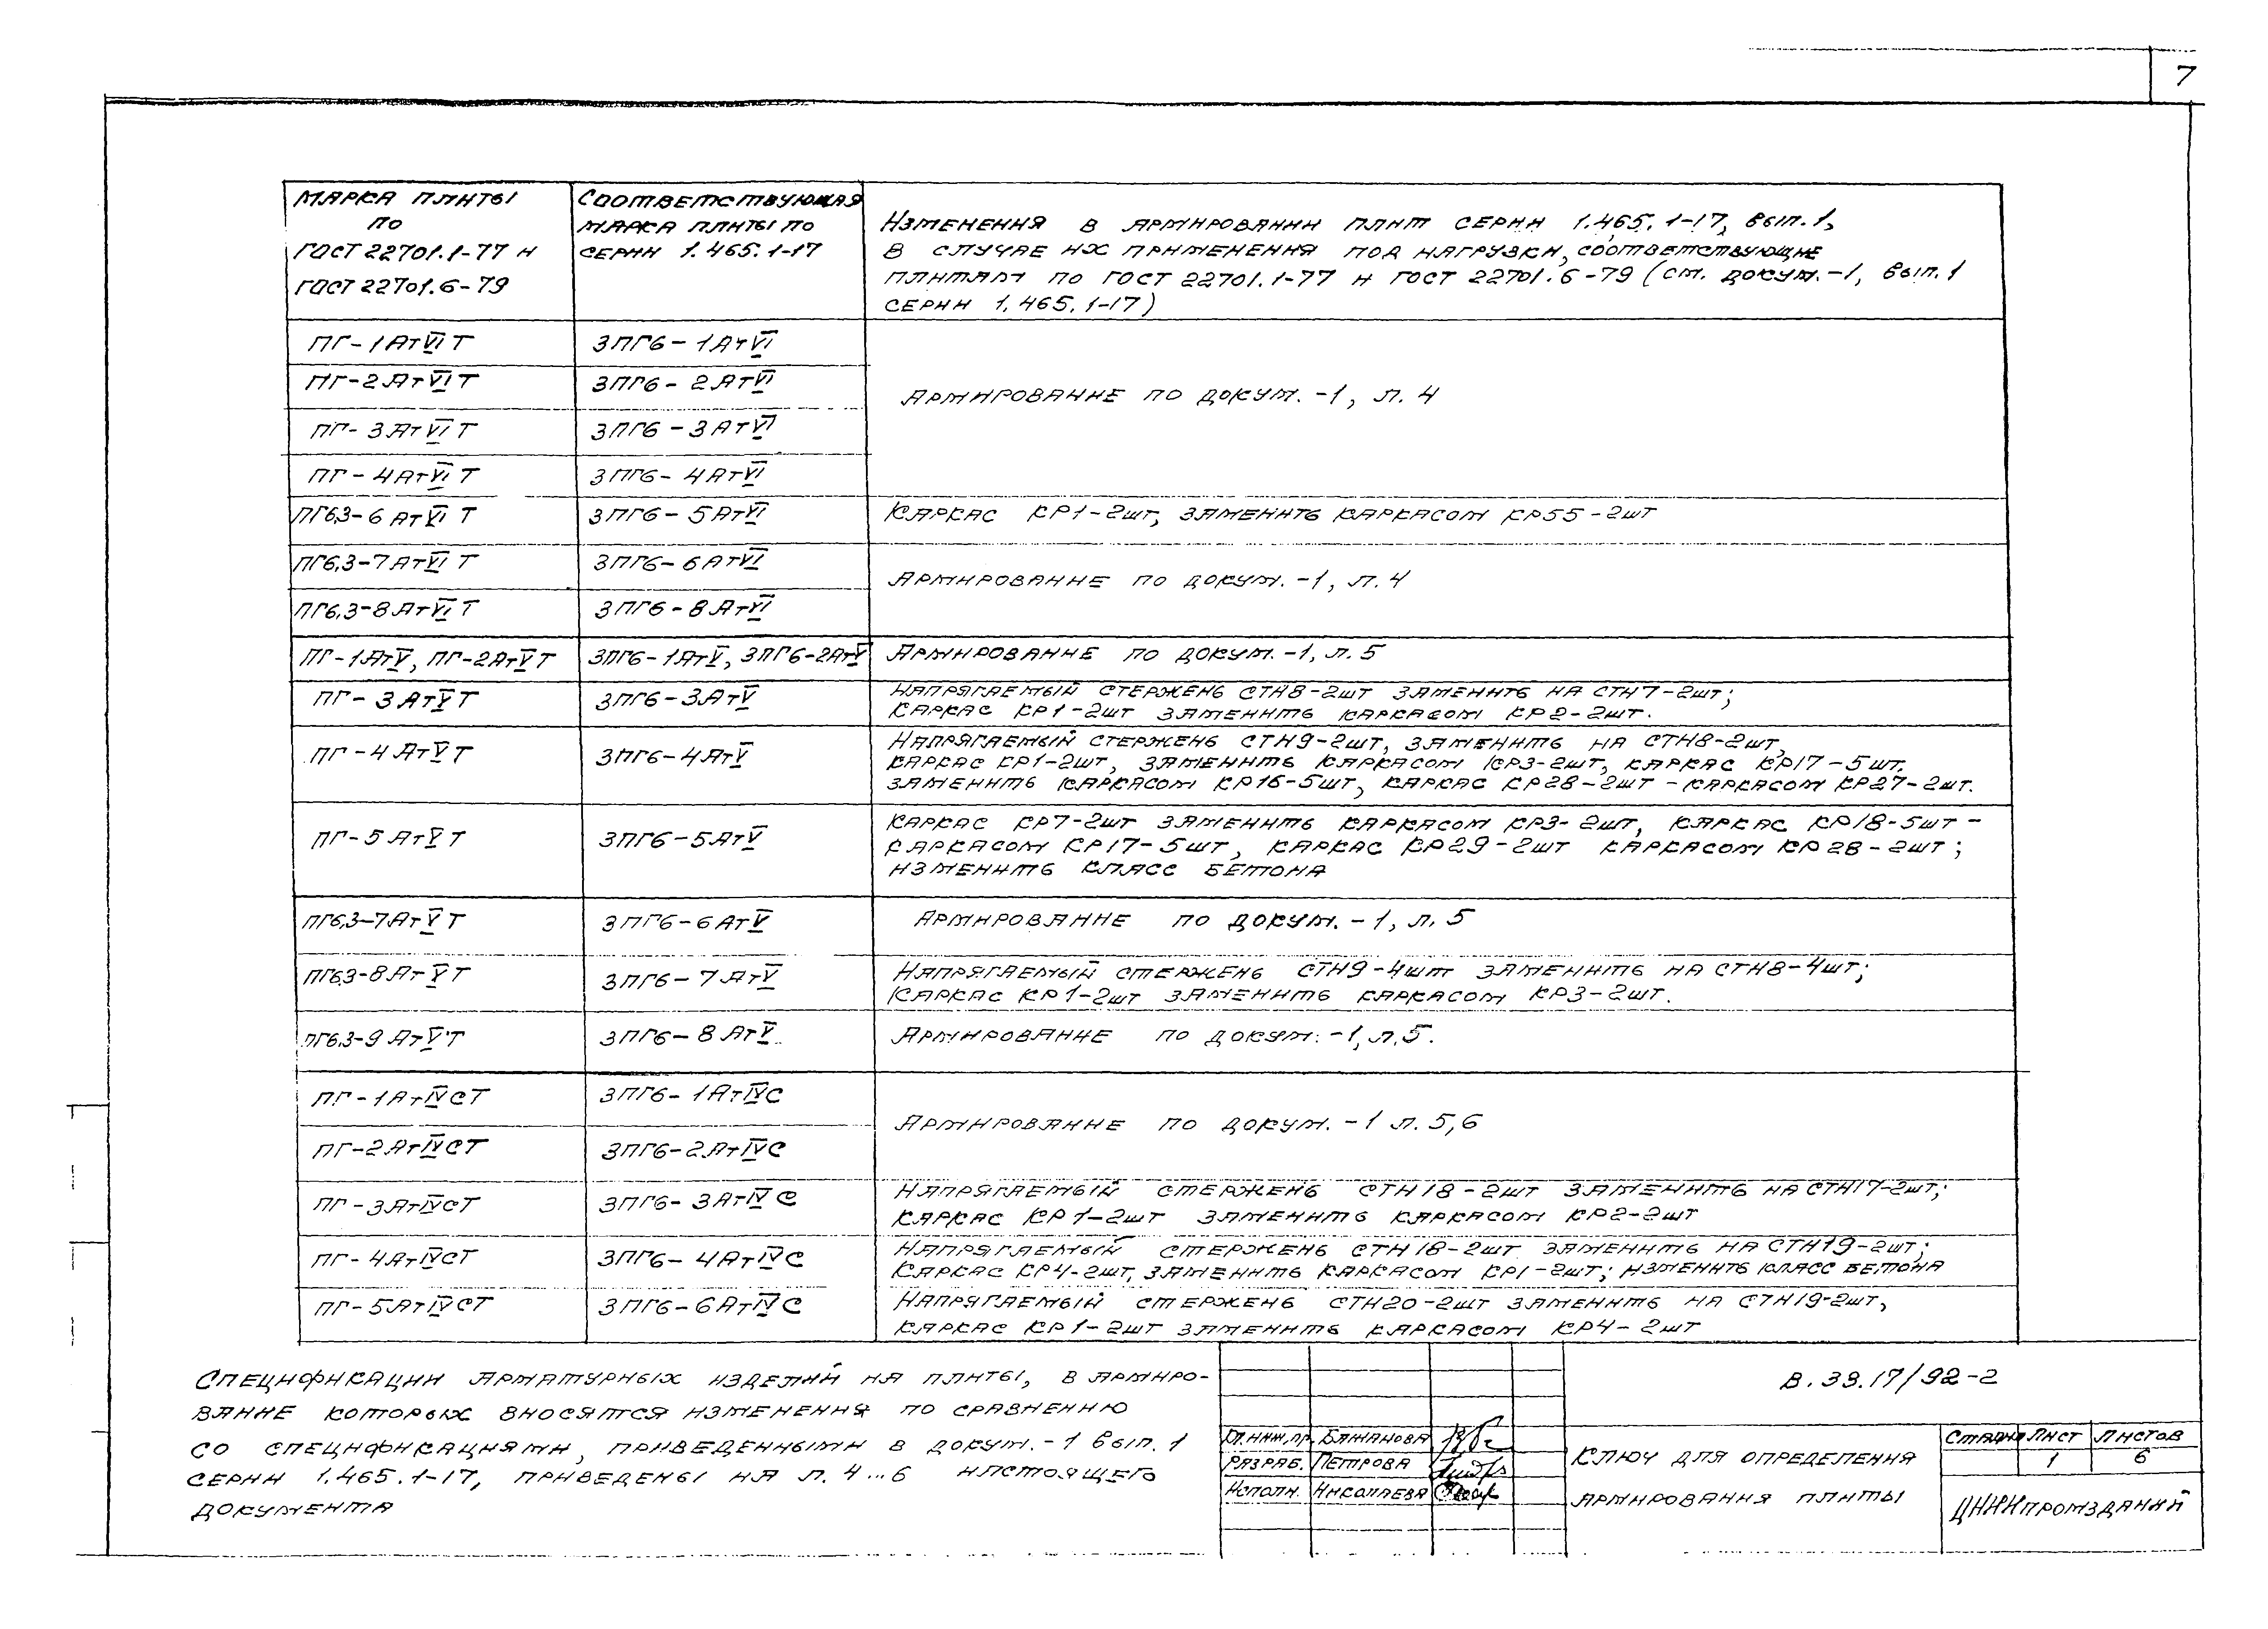 7
Марка плиты
по
ГОСТ 22701.1-77 и
ГОСТ 22701.6-79
Соответствующая
марка плиты по
серии 1.465.1-17
Изменения в армировании плит серии 1.465.1-17, вып.1,
в случае их применения под нагрузки, соответствующие
плитам по ГОСТ 22701.1-77 и ГОСТ 22701.6-79 (см. докум.-1, вып.1
серии 1.465.1-17)
ПГ-1АтVIТ 3ПГ6-1АтVI
ПГ-2АтVIТ 3ПГ6-2АтVI
Армирование по докум.-1, л.4
ПГ-3АтVIТ 3ПГ6-3АтVI
ПГ-4АтVIТ 3ПГ6-4АтVI
ПГ6,3-6АтVIТ 3ПГ6-5АтVI Каркас КР1-2шт, заменить каркасом КР55-2шт
ПГ6,3-7АтVIТ 3ПГ6-6АтVI
Армирование по докум.-1, л.4
ПГ6,3-8АтVIТ 3ПГ6-8АтVI
ПГ-1АтV, ПГ-2АтVТ 3ПГ6-1АтV, 3ПГ6-2АтV Армирование по докум.-1, л.5
ПГ-3АтVТ 3ПГ6-3АтV Напрягаемый стержень СТН8-2шт заменить на СТН7-2шт;
каркас КР1-2шт заменить каркасом КР2-2шт.
ПГ-4АтVТ 3ПГ6-4АтV Напрягаемый стержень СТН9-2шт, заменить на СТН8-2шт,
каркас КР1-2шт, заменить каркасом КР3-2шт, каркас КР17-5шт.
заменить каркасом КР16-5шт, каркас КР28-2шт - каркасом КР27-2шт.
ПГ-5АтVТ 3ПГ6-5АтV Каркас КР7-2шт заменить каркасом КР3-2шт, каркас КР18-5шт -
каркасом КР17-5шт, каркас КР29-2шт каркасом КР28-2шт;
изменить класс бетона
ПГ6,3-7АтVТ 3ПГ6-6АтV Армирование по докум.-1, л.5
ПГ6,3-8АтVТ 3ПГ6-7АтV Напрягаемый стержень СТН9-4шт заменить на СТН8-4шт;
каркас КР1-2шт заменить каркасом КР3-2шт.
ПГ6,3-9АтVТ 3ПГ6-8АтV Армирование по докум.-1, л.5.
ПГ-1АтIVСТ 3ПГ6-1АтIVС
Армирование по докум.-1 л.5,6
ПГ-2АтIVСТ 3ПГ6-2АтIVС
ПГ-3АтIVСТ 3ПГ6-3АтIVС Напрягаемый стержень СТН18-2шт заменить на СТН17-2шт;
каркас КР1-2шт заменить каркасом КР2-2шт
ПГ-4АтIVСТ 3ПГ6-4АтIVС Напрягаемый стержень СТН18-2шт заменить на СТН19-2шт;
каркас КР4-2шт, заменить каркасом КР1-2шт; изменить класс бетона
ПГ-5АтIVСТ 3ПГ6-6АтIVС Напрягаемый стержень СТН20-2шт заменить на СТН19-2шт,
каркас КР1-2шт заменить каркасом КР4-2шт
Спецификации арматурных изделий на плиты, в армиро-
вание которых вносятся изменения по сравнению
со спецификациями, приведенными в докум.-1 вып.1
серии 1.465.1-17, приведены на л. 4...6 настоящего
документа
В.39.17/92-2
Гл.инж.пр. Бажанова
Разраб. Петрова
Исполн. Николаева
Ключ для определения
армирования плиты
Стадия Лист Листов
1 6
ЦНИИпромзданий